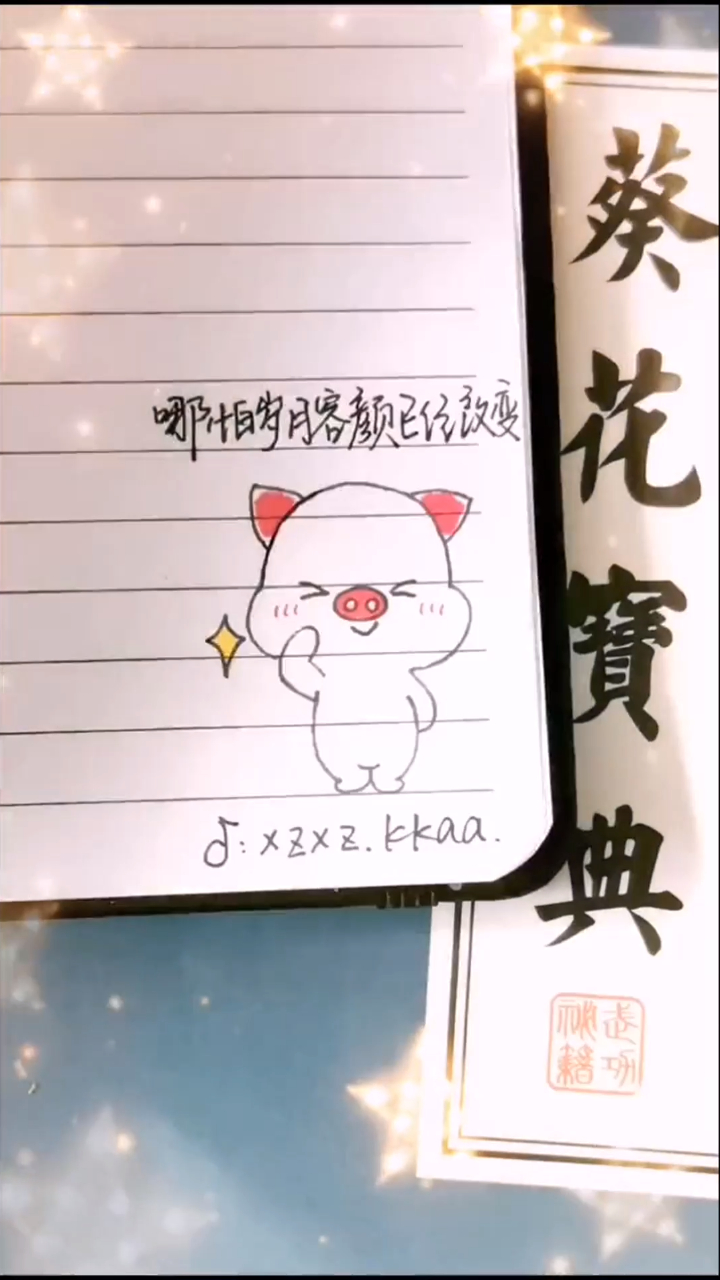 哪怕岁月容颜已经改变
♪: xzxz.kkaa.
葵花寶典
武功
秘籍